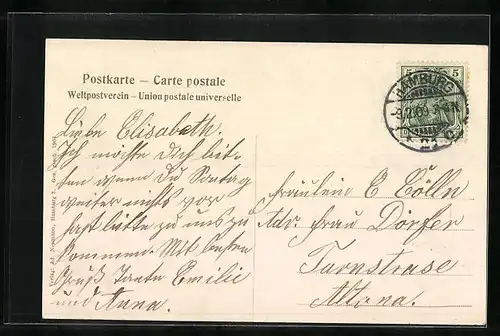 Postkarte – Carte postale
Weltpostverein – Union postale universelle
5 5
HAMBURG
Liebe Elisabeth.
Ich möchte Dich bit-
ten wenn Du Sontag
weiter nichts vor
hast bitte zu uns zu
kommen. Mit besten
Gruß Tante Emilie
und Anna.
Fräulein C Cölln
Adr. Frau Dörfer
Turnstrase
Altona.
Verlag: Ad. Hamburg